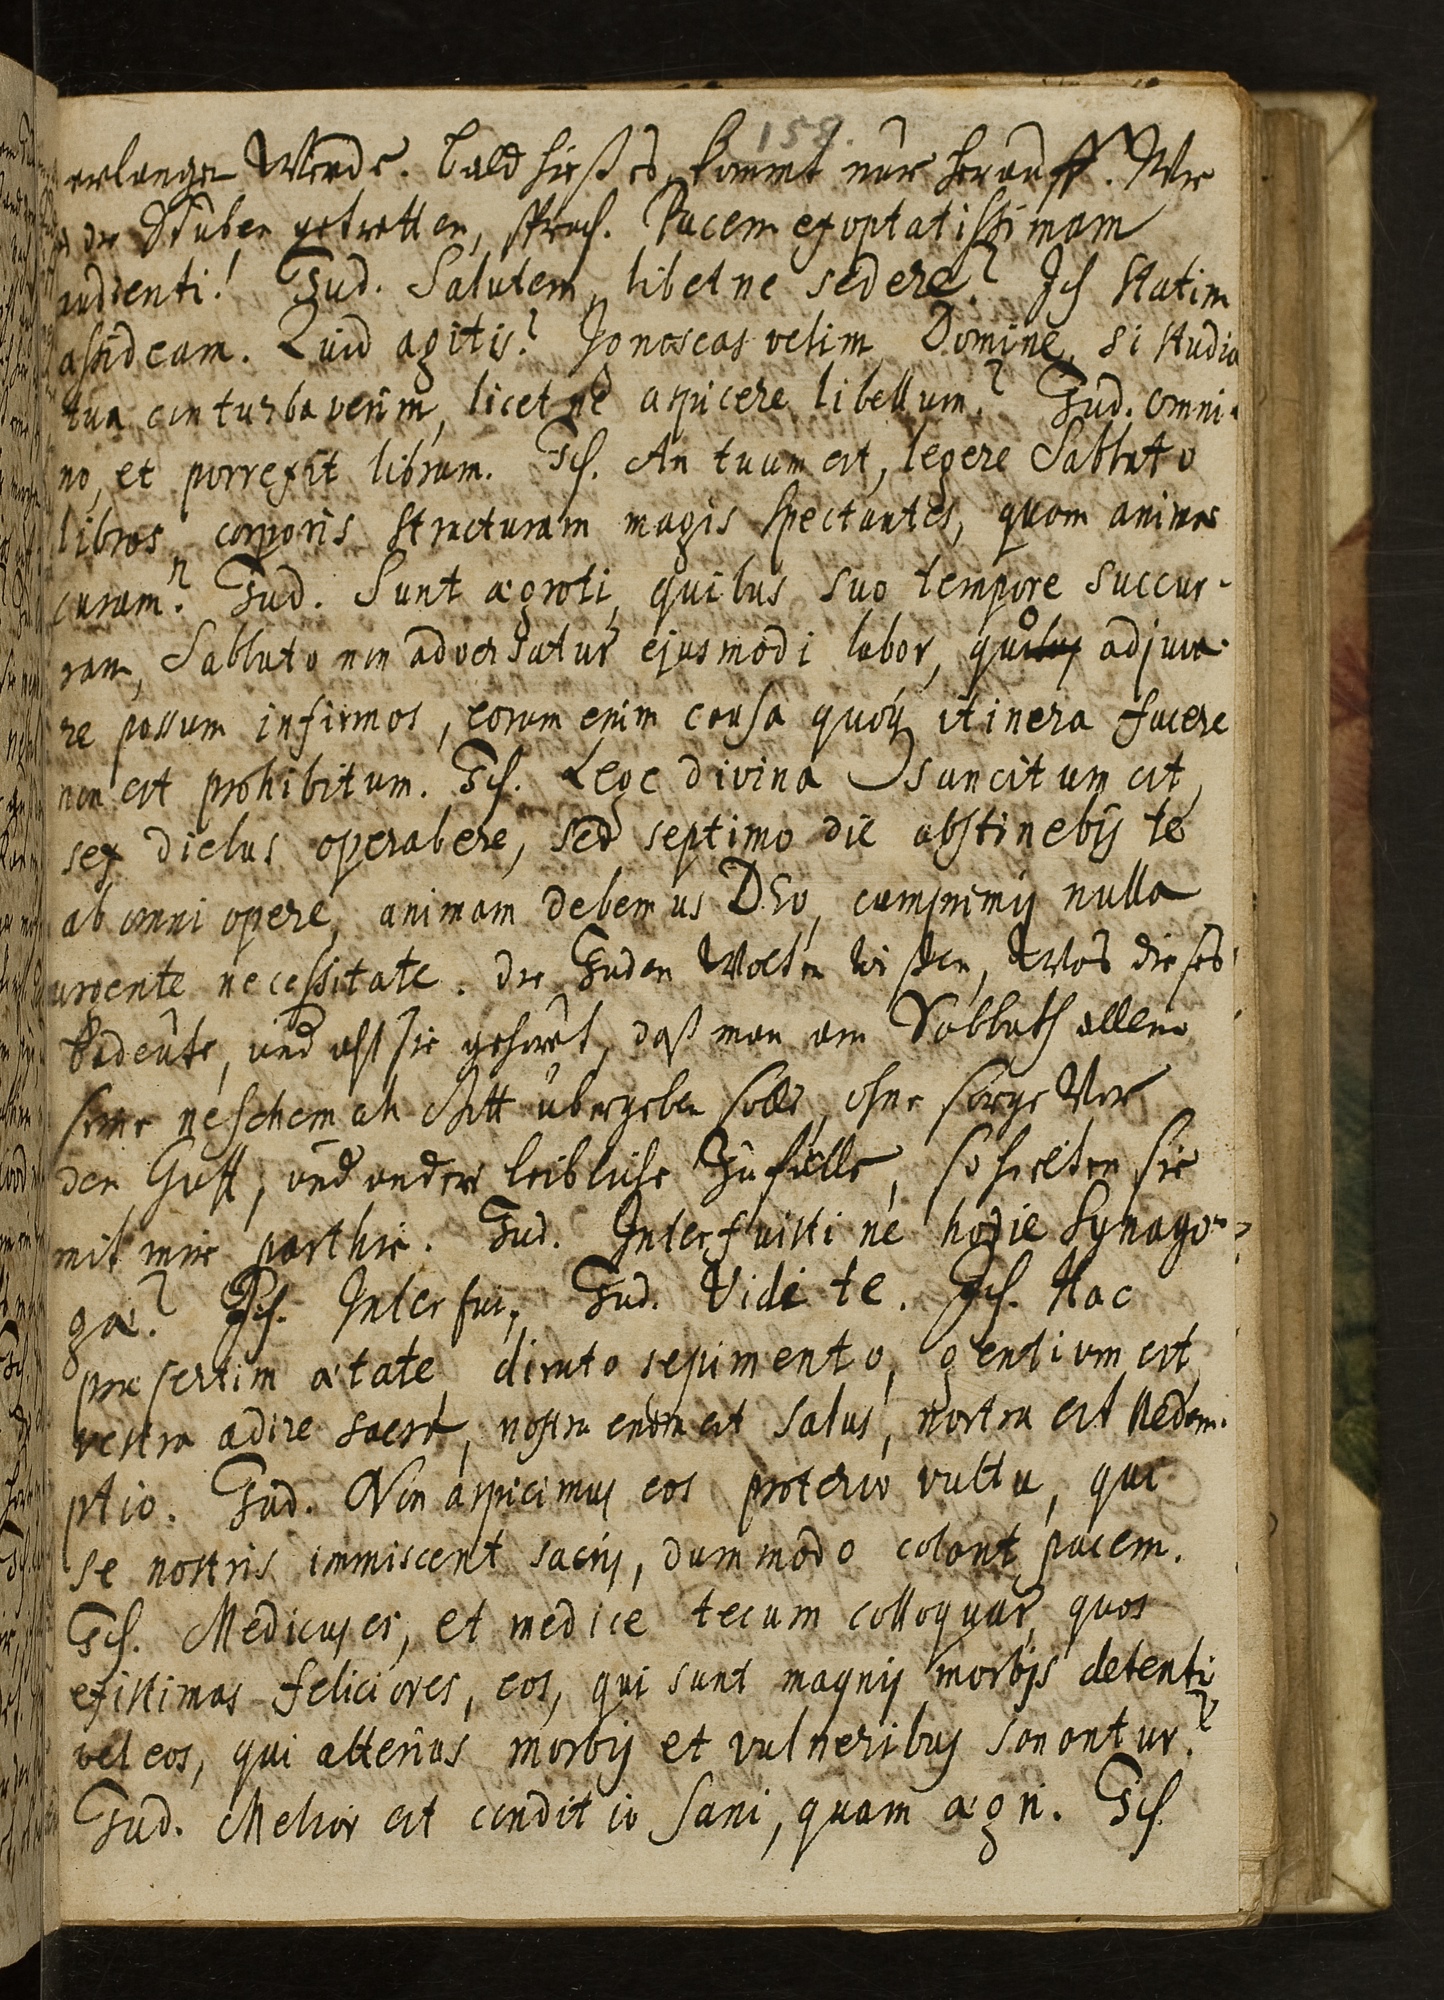 158.
erlangen werde. bald hieß es, kommt nur herauff. Wie
der Stuben getretten, sprach. Pacem exoptatissimam
audienti! Jud. Salutem, libetne sedere? Ich statim
assideam. Quid agitis? Ignoscas velim Domine, si studia
tua conturbaverim, licet ne aspicere libellum? Jud. omni-
no, et porrexit librum. Ich. An tuum est, legere Sabbato
libros corporis structuram magis spectantes, quam animae
curam? Jud. Sunt aegroti, quibus suo tempore succur-
ram, Sabbato non adversatur ejusmodi labor, quo adjuva-
re possum infirmos, eorum enim causa quoq itinera facere
non est prohibitum. Ich. Lege divina sancitum est,
sex diebus operabere, sed septimo die abstinebis te
ab omni opere, animam debemus DEo, cumprimis nulla
urgente necessitate. die Juden wolten wißen, was dieses
bedeute, und alß sie gehöret, daß man am Sabbath allein
seine neschemah Gott übergeben solle, ohne sorge vor
den Guff, und andere leibliche Zufälle, so hielten sie
mit mir parthie. Jud. Interfuisti ne hodie Synago-
gae? Ich. Interfui, Jud. Vidi te. Ich. Hac
praesertim aetate, diruto sepimento, gentium est,
vestra adire sacra, nostra enim est salus, nostra est Redem-
ptio. Jud. Non aspicimus eos protervo vultu, qui
se nostris immiscent sacris, dummodo colant pacem.
Ich. Medicus es, et medice tecum colloquar, quos
existimas feliciores, eos, qui sunt magnis morbis detenti,
vel eos, qui alterius morbis et vulneribus sanantur?
Jud. Melior est conditio sani, quam aegri. Ich